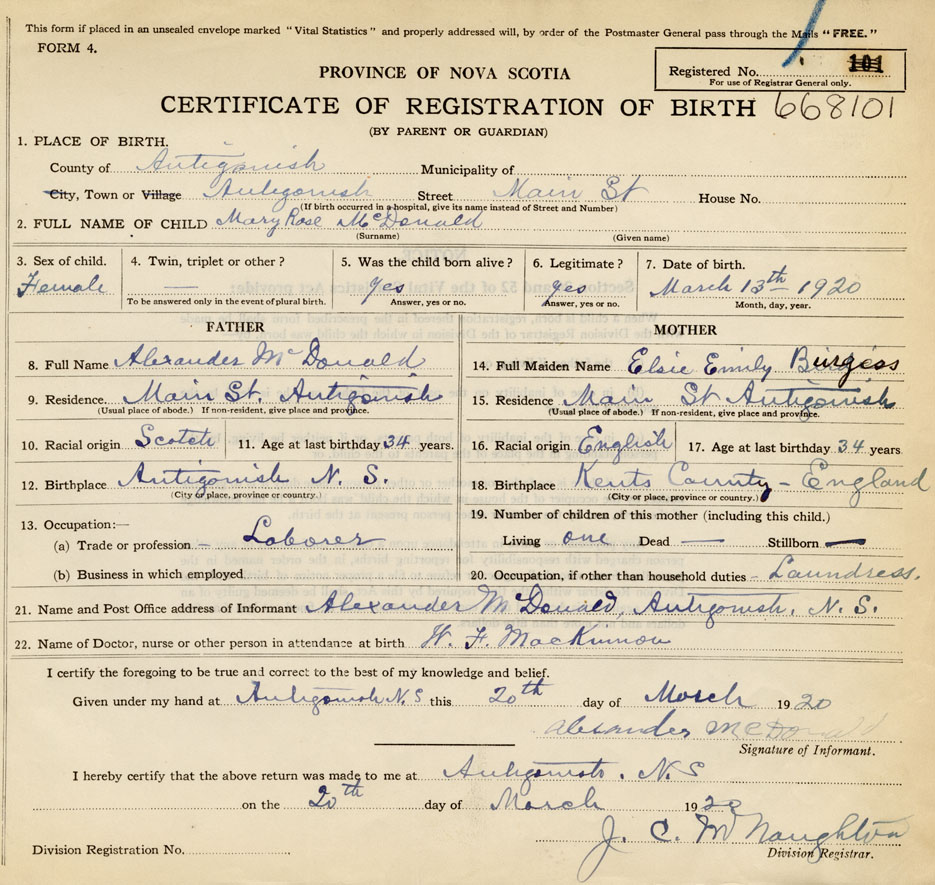 This form if placed in an unsealed envelope marked "Vital Statistics" and properly addressed will, by order of the Postmaster General pass through the Mails "FREE."
FORM 4.
Registered No. 101
For use of Registrar General only.
PROVINCE OF NOVA SCOTIA
CERTIFICATE OF REGISTRATION OF BIRTH 668101
(BY PARENT OR GUARDIAN)
1. PLACE OF BIRTH.
County of Antigonish Municipality of
City, Town or Village Antigonish Street Main St House No.
(If birth occurred in a hospital, give its name instead of Street and Number)
2. FULL NAME OF CHILD Mary Rose McDonald
(Surname) (Given name)
3. Sex of child. 4. Twin, triplet or other? 5. Was the child born alive? 6. Legitimate? 7. Date of birth.
Female — yes yes March 13th 1920
To be answered only in the event of plural birth. Answer, yes or no. Answer, yes or no. Month, day, year.
FATHER MOTHER
8. Full Name Alexander McDonald 14. Full Maiden Name Elsie Emily Burgess
9. Residence. Main St. Antigonish 15. Residence Main St Antigonish
(Usual place of abode.) If non-resident, give place and province. (Usual place of abode.) If non-resident, give place and province.
10. Racial origin Scotch 11. Age at last birthday 34 years. 16. Racial origin English 17. Age at last birthday 34 years
12. Birthplace Antigonish N. S. 18. Birthplace Kents County - England
(City or place, province or country.) (City or place, province or country.)
13. Occupation:— 19. Number of children of this mother (including this child.)
(a) Trade or profession - Laborer Living one Dead — Stillborn —
(b) Business in which employed 20. Occupation, if other than household duties - Laundress.
21. Name and Post Office address of Informant Alexander McDonald, Antigonish, N. S.
22. Name of Doctor, nurse or other person in attendance at birth W. F. MacKinnon
I certify the foregoing to be true and correct to the best of my knowledge and belief.
Given under my hand at Antigonish N. S this 20th day of March 1920
Alexander McDonald
Signature of Informant.
I hereby certify that the above return was made to me at Antigonish. N. S
on the 20th day of March 1920
J. C. McNaughton
Division Registration No. Division Registrar.